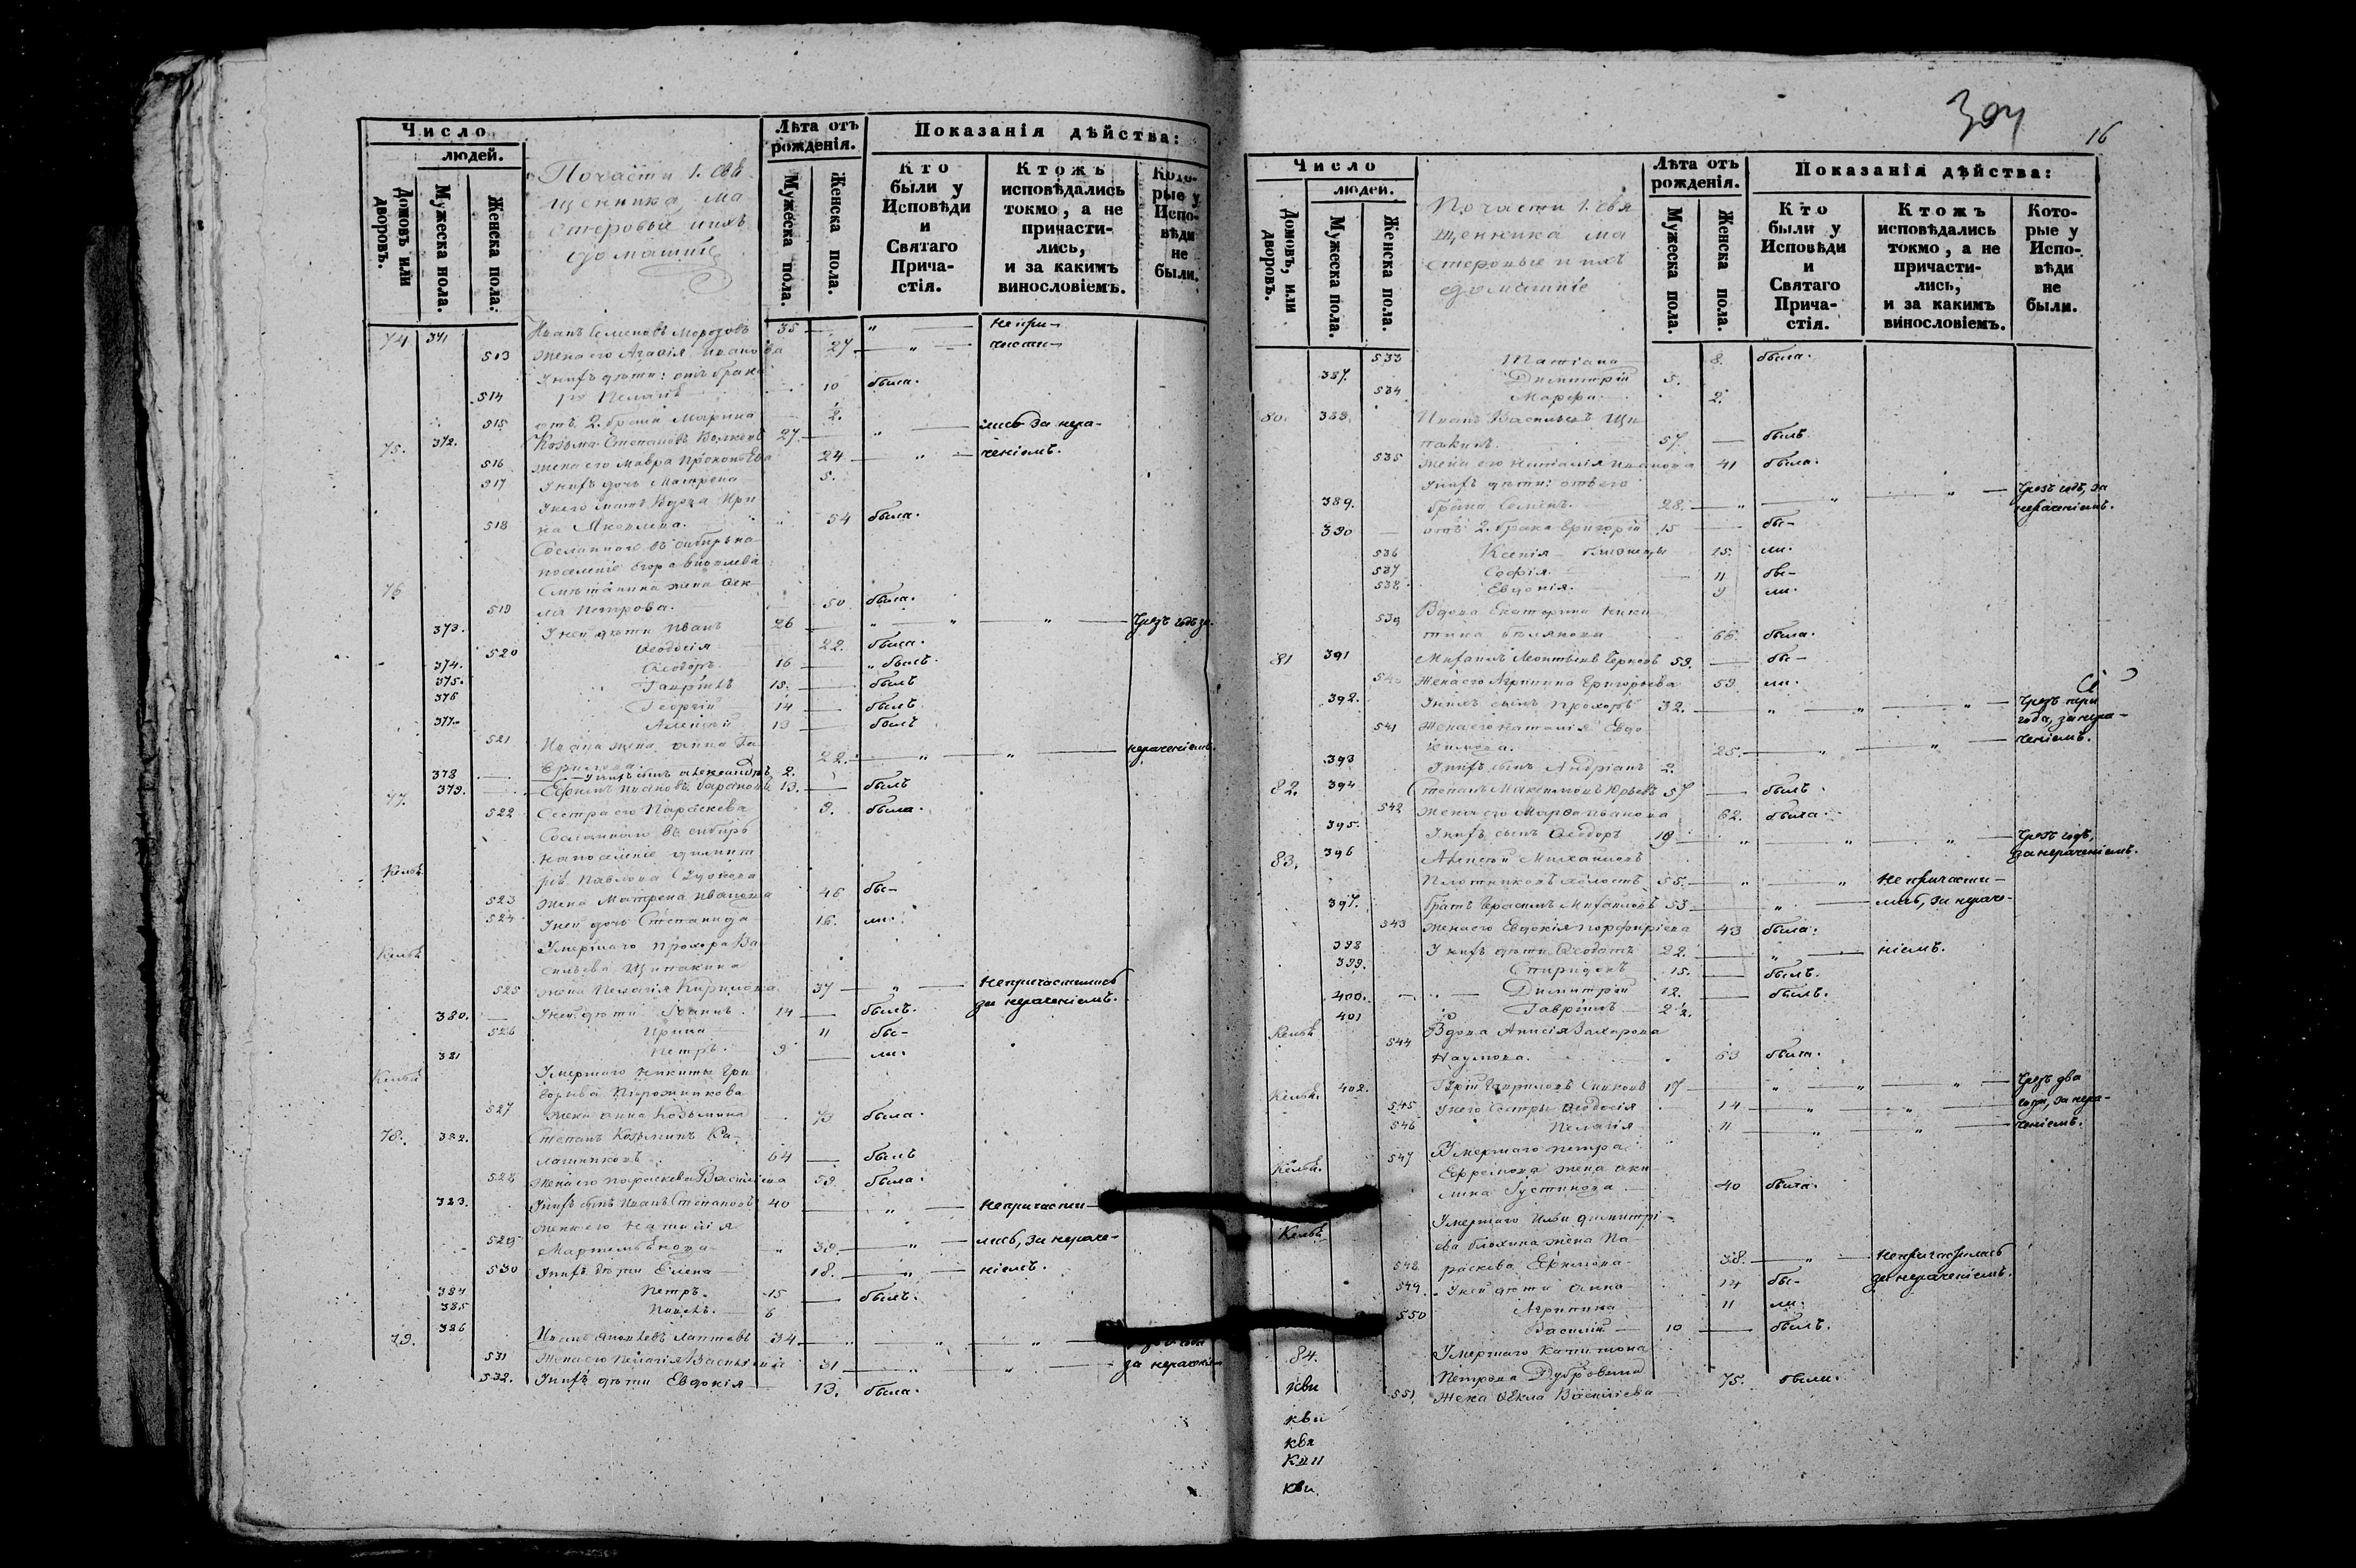 Число
людей.
Домовъ или дворовъ.
Мужеска пола.
Женска пола.
По части 1. свя
щенника ма
стеровые и ихъ
домашніе
Лѣта отъ рожденія.
Мужеска пола.
Женска пола.
Показанія дѣйства:
Кто были у Исповѣди и Святаго Причастія.
Ктожъ исповѣдались токмо, а не причастились, и за какимъ винословіемъ.
Которые у Исповѣди не были.
74 371 Иванъ Семеновъ Морозовъ 35 — " — не при-
513 Жена его Агафія Иванова 27 — " — части-
У нихъ дѣти: отъ брака
514 1го Пелагѣ 10 была.
515 отъ 2. брака Марина 2.
75. 372. Козьма Степановъ Волковъ 27 — " — лись за нера-
516 Жена его Мавра 24 — " — ченіемъ.
517 У нихъ дочь Матрена 5.
У него мать вдова Ири
518 на Яковлева. " 54 была.
Сосланнаго въ сибирь на
поселеніе Егора
76 Сметанина жена Фек
519 ла Петрова. 50 была.
373. У ней дѣти Иванъ 26 — " — " — " — Чрезъ годъ за
520 Феодосія 22. была.
374. Феодоръ 16 — " былъ.
375. Гаврiилъ 15. — былъ
376 Георгій 14 — былъ
377. Алексѣй 13 — былъ
521 Ивана жена Анна Га
врилова. 22. — " — " — нераченіемъ.
378 У нихъ сынъ Александръ 2.
77. 379. Ефимъ Ивановъ 13. — былъ
522 Сестра его Параскева 9. была.
Сосланнаго въ сибирь
на поселеніе Димит
Кельѣ рія Павлова
523 жена Матрена Иванова 46 бы-
524 У ней дочь Степанида 16. ли.
Умершаго Прохора Ва
Кельѣ сильева Щипакина
525 жена Пелагія Кирилова 37 — " — Не причастилась
за нераченіемъ.
380. У ней дѣти Іоаннъ 14 — былъ.
526 Ирина 11 бы-
381 Петръ 9 — ли.
Кельѣ Умершаго Никиты Гри
горьева Пирожникова
527 жена Анна Козьмина 73 была.
78. 382. Степанъ Козьминъ Ка-
лашниковъ 64 — былъ
528 Жена его Параскева Васильева 59. была.
383. У нихъ сынъ Иванъ Степановъ 40 — " — Не причасти-
Жена его Наталія
529 38. — " — лись, за нераче-
530 У нихъ дѣти Елена 18. — " — ніемъ.
384 Петръ 15 — былъ.
385 Павелъ 6
79. 386 Иванъ Лаптевъ 34 — " — " — "
531 Жена его Пелагія Васильева 31 — " — " — за нераченіе
532. У нихъ дѣти Евдокія 13. была.
304
16
Число
людей.
Домовъ, или дворовъ.
Мужеска пола.
Женска пола.
По части 1. свя
щенника ма
стеровые и ихъ
домашніе
Лѣта отъ рожденія.
Мужеска пола.
Женска пола.
Показанія дѣйства:
Кто были у Исповѣди и Святаго Причастія.
Ктожъ исповѣдались токмо, а не причастились, и за какимъ винословіемъ.
Которые у Исповѣди не были.
533 Татіана 8. была.
387. Димитрій 5.
534 Марфа 2.
80. 388. Иванъ Васильевъ Щи
пакинъ. 57. — былъ
535 Жена его Наталія Иванова 41 была.
У нихъ дѣти: отъ 1го
389. брака Семенъ. 28. — " — " — " — Чрезъ годъ, за
нераченіемъ.
390 отъ 2. брака Григорій 15 — бы-
536 Ксенія близнецы 15. ли.
537 Софія 11 бы-
538. Евдокія. 9 ли.
539 Вдова Екатерина Ники
тина 66. была.
81 391 Михаилъ Леонтьевъ Черновъ 59. — бы-
540 Жена его Агрипина Григорьева 59. ли.
392. У нихъ сынъ Прохоръ 32. — " — " — " — Чрезъ
года, за нера-
541 Жена его Наталія Евдо
кимова. 25. — " — " — ченіемъ.
393 У нихъ сынъ Андріанъ 2.
82. 394 Степанъ Максимовъ Юрьевъ 57 — былъ
542 Жена его Марфа Иванова 62. была.
395. У нихъ сынъ Феодоръ 19 — " — " — " — Чрезъ годъ,
за нераченіемъ.
83. 396 Алексѣй Михайловъ
Плотниковъ холостъ 55. — " — " Не причасти-
397. братъ Герасимъ Михайловъ 53 — " — лись, за нераче-
543 Жена его Евдокія Порфирьева 43 была.
398 У нихъ дѣти Феодотъ 22. — " — ніемъ.
399. Спиридонъ 15. — былъ.
400. Димитрій 12. — былъ.
401 Гаврiилъ 2½.
Кельѣ 544 Вдова Анисія Захарова
Наумова. 63 была.
Кельѣ 402. Гаврилов 17 — " — " — " — Чрезъ два
545 У него сестры Феодосія 14 — " — " — года, за нера-
546 Пелагія 11 — " — " — ченіемъ.
547 Умершаго Петра
Кельѣ. Ефремова жена Аки
лина Густинова 40 была.
Умершаго Ильи Димитрі-
Кельѣ ева Блохина жена Па
548 раскева Ефимова 38. — " — Не причастилась
549. У ней дѣти Анна 14 бы- за нераченіемъ.
550 Агрипина 11 ли.
Василій 10 — былъ.
84. Умершаго Капитона
Петрова Дубровина
551 Жена Фекла Васильева 75. были.